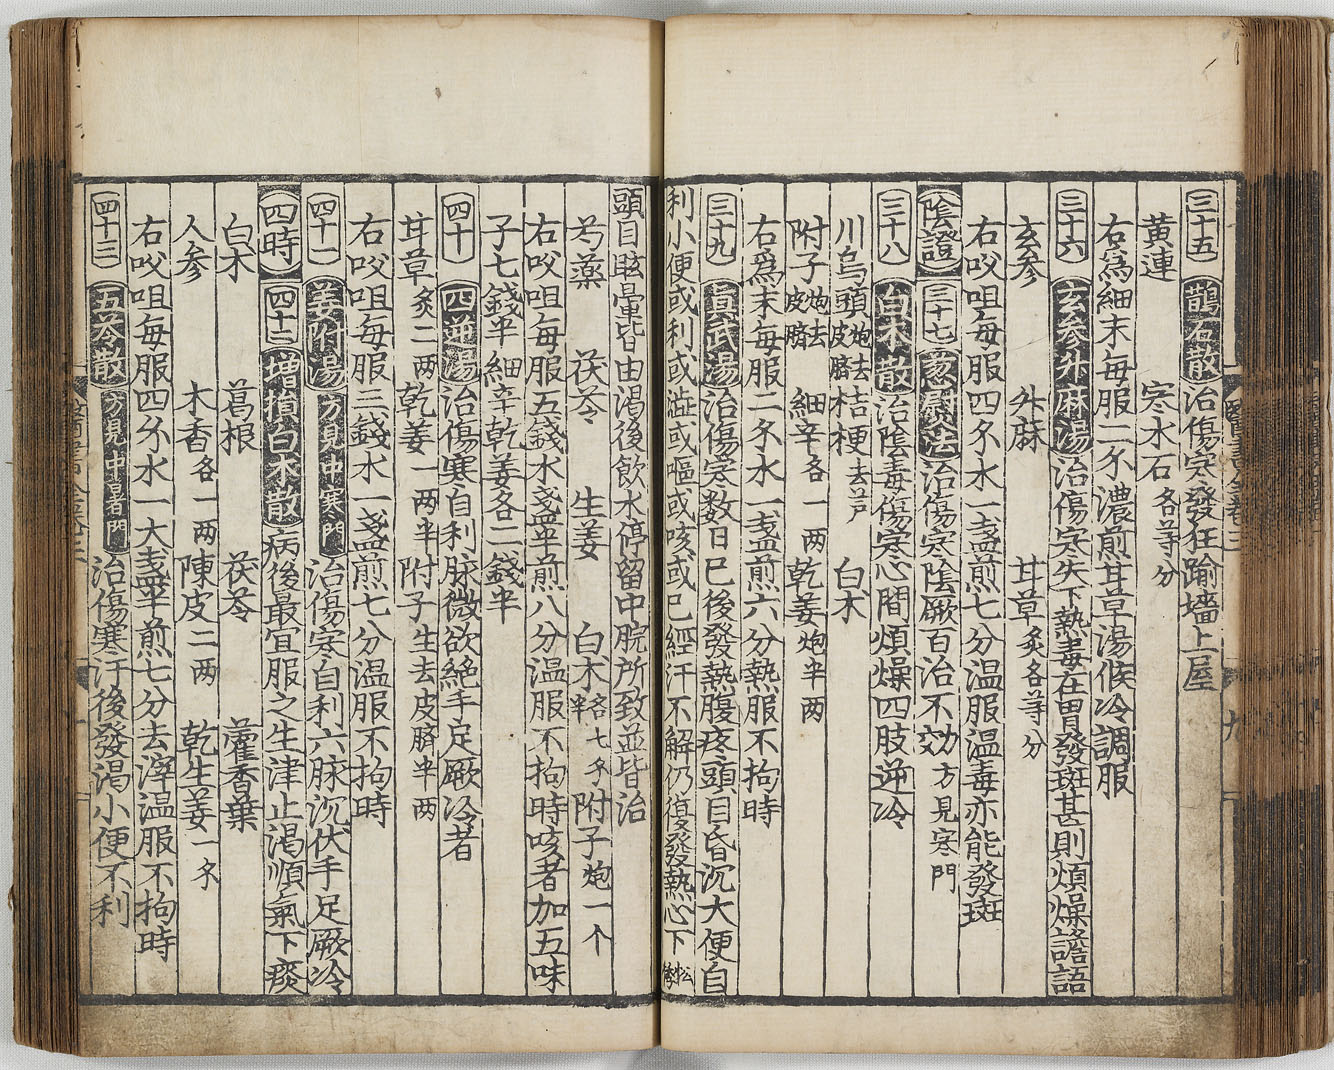 三十五 鵲石散 治傷寒發狂踰墻上屋
黃連 寒水石各等分
右爲細末每服二ㄆ濃煎甘草湯候冷調服
三十六 玄参升麻湯 治傷寒失下熱毒在胃發斑甚則煩燥譫語
玄参 升蔴 甘草炙各等分
右㕮咀每服四ㄆ水一盞煎七分温服温毒亦能發斑
陰證 三十七 葱熨法 治傷寒陰厥百治不効方見寒門
三十八 白术散 治陰毒傷寒心間煩燥四肢逆冷
川烏頭炮去皮臍 桔梗去芦 白术
附子炮去皮臍 細辛各一两 乾姜炮半两
右爲末每服二ㄆ水一盞煎六分熱服不拘時
三十九 眞武湯 治傷寒数日已後發熱腹疼頭目昏沉大便自
利小便或利或澁或嘔或咳或已經汗不解仍復發熱心下
頭目眩暈皆由渴後飲水停留中脘所致並皆治
芍藥 茯苓 生姜 白术各七ㄆ半 附子炮一个
右㕮咀每服五錢水盞半煎八分温服不拘時咳者加五味
子七錢半細辛乾姜各二錢半
四十 四逆湯 治傷寒自利脉微欲絶手足厥冷者
甘草炙二两 乾姜一两半 附子生去皮臍半两
右㕮咀每服三錢水一盞煎七分温服不拘時
四十一 姜附湯 方見中寒門 治傷寒自利六脉沉伏手足厥冷
四時 四十二 增損白术散 病後最宜服之生津止渴順氣下痰
白术 葛根 茯苓 藿香葉
人参 木香各一两 陳皮二两 乾生姜一ㄆ
右㕮咀每服四ㄆ水一大盞半煎七分去滓温服不拘時
四十三 五苓散 方見中暑門 治傷寒汗後發渴小便不利